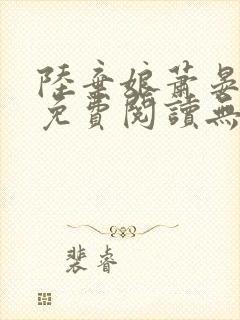 陸棄娘蕭晏
免費閱讀無
裴睿